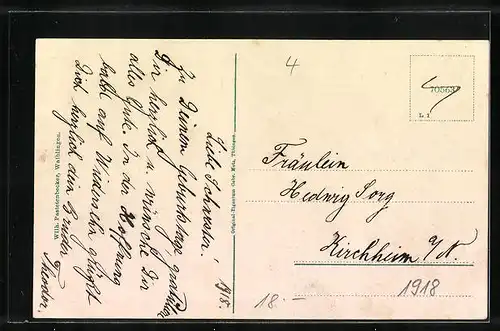 1918.
Liebe Schwester!
Zu Deinem Geburtstage gratuliere
Dir herzlich u. wünsche Dir
alles Gute. In der Hoffnung
bald auf Wiedersehn grüsst
Dich herzlich dein Bruder
Theodor.
Wilh. Pastetenbecker, Waiblingen.
Original-Eigentum Gebr. Metz, Tübingen
4
705637
L. 1
Fräulein
Hedwig Sorg
Kirchheim a/N.
18.- 1918